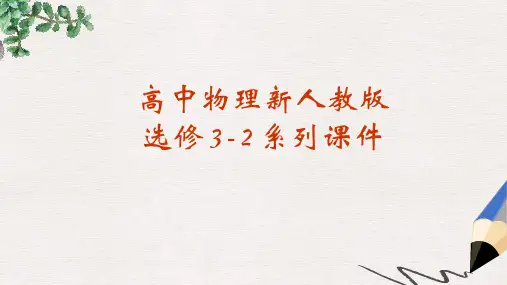 高中物理新人教版
选修3-2系列课件